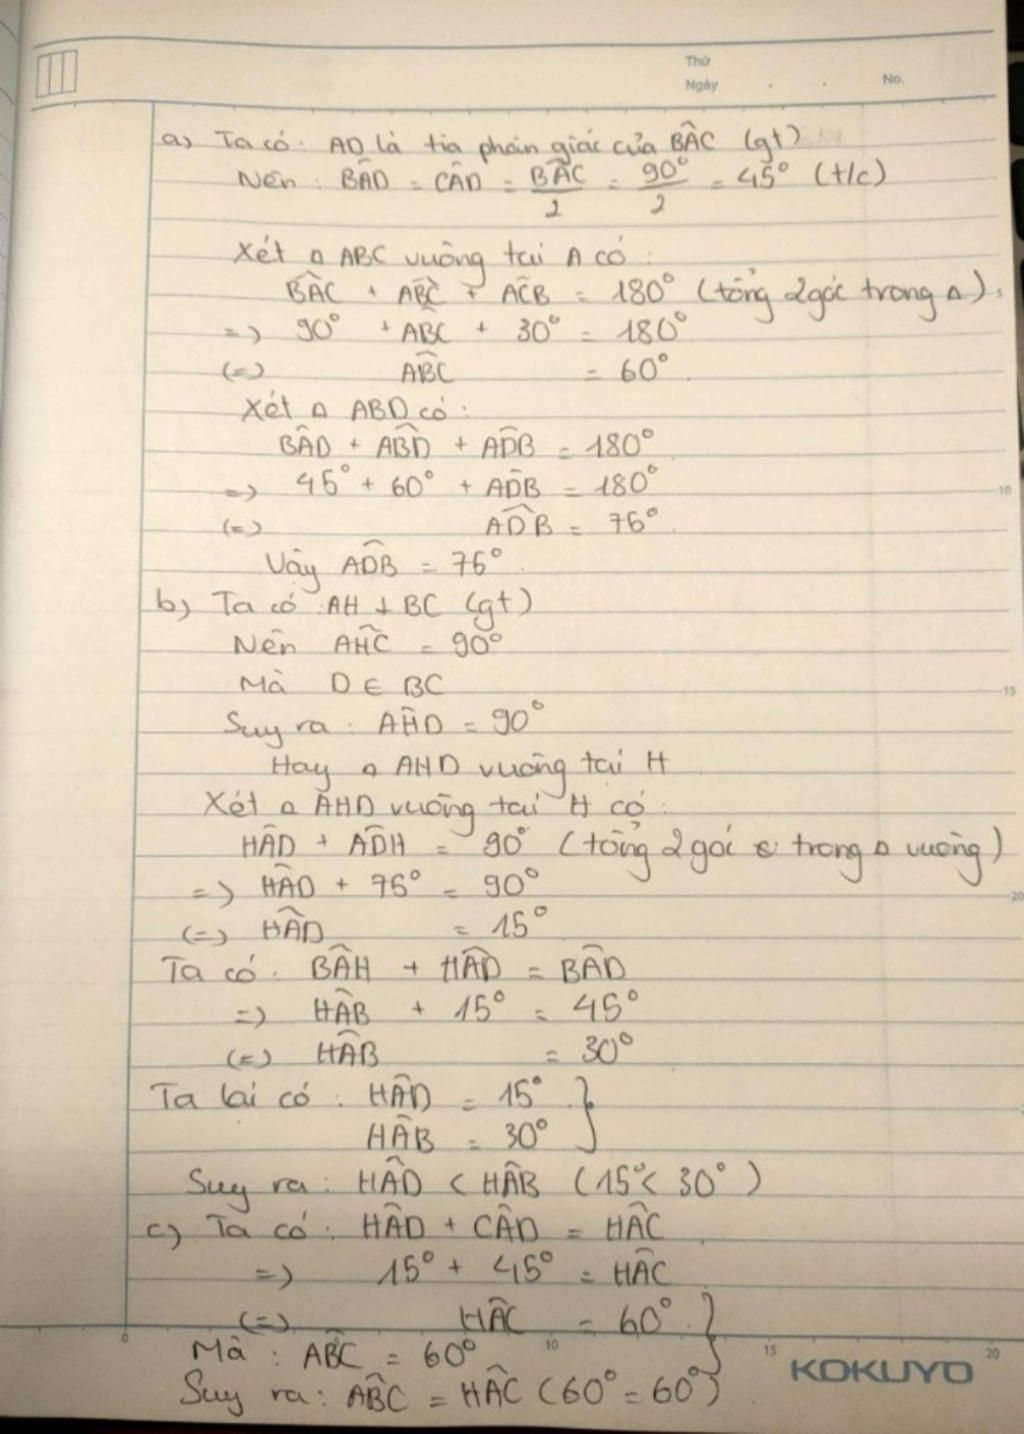 Thứ
Ngày . . No.
a) Ta có: AD là tia phân giác của BÂC (gt)
Nên: BÂD = CÂD = BÂC/2 = 90°/2 = 45° (t/c)
Xét △ ABC vuông tại A có:
BÂC + AB̂C + AĈB = 180° (tổng 2góc trong △).
=> 90° + AB̂C + 30° = 180°
(=) AB̂C = 60°.
Xét △ ABD có:
BÂD + AB̂D + AD̂B = 180°
=> 45° + 60° + AD̂B = 180°
(=) AD̂B = 75°.
Vậy AD̂B = 75°.
b) Ta có: AH ⊥ BC (gt)
Nên AĤC = 90°
Mà D ∈ BC
Suy ra: AĤD = 90°
Hay △ AHD vuông tại H
Xét △ AHD vuông tại H có:
HÂD + AD̂H = 90° (tổng 2 góc trong △ vuông)
=> HÂD + 75° = 90°
(=) HÂD = 15°
Ta có: BÂH + HÂD = BÂD
=> HÂB + 15° = 45°
(=) HÂB = 30°
Ta lại có: HÂD = 15° }
HÂB = 30°
Suy ra: HÂD < HÂB (15° < 30°)
c) Ta có: HÂD + CÂD = HÂC
=> 15° + 45° = HÂC
(=) HÂC = 60° }
Mà: AB̂C = 60°
Suy ra: AB̂C = HÂC (60° = 60°)
10
15
20
0 10 15 20
KOKUYO